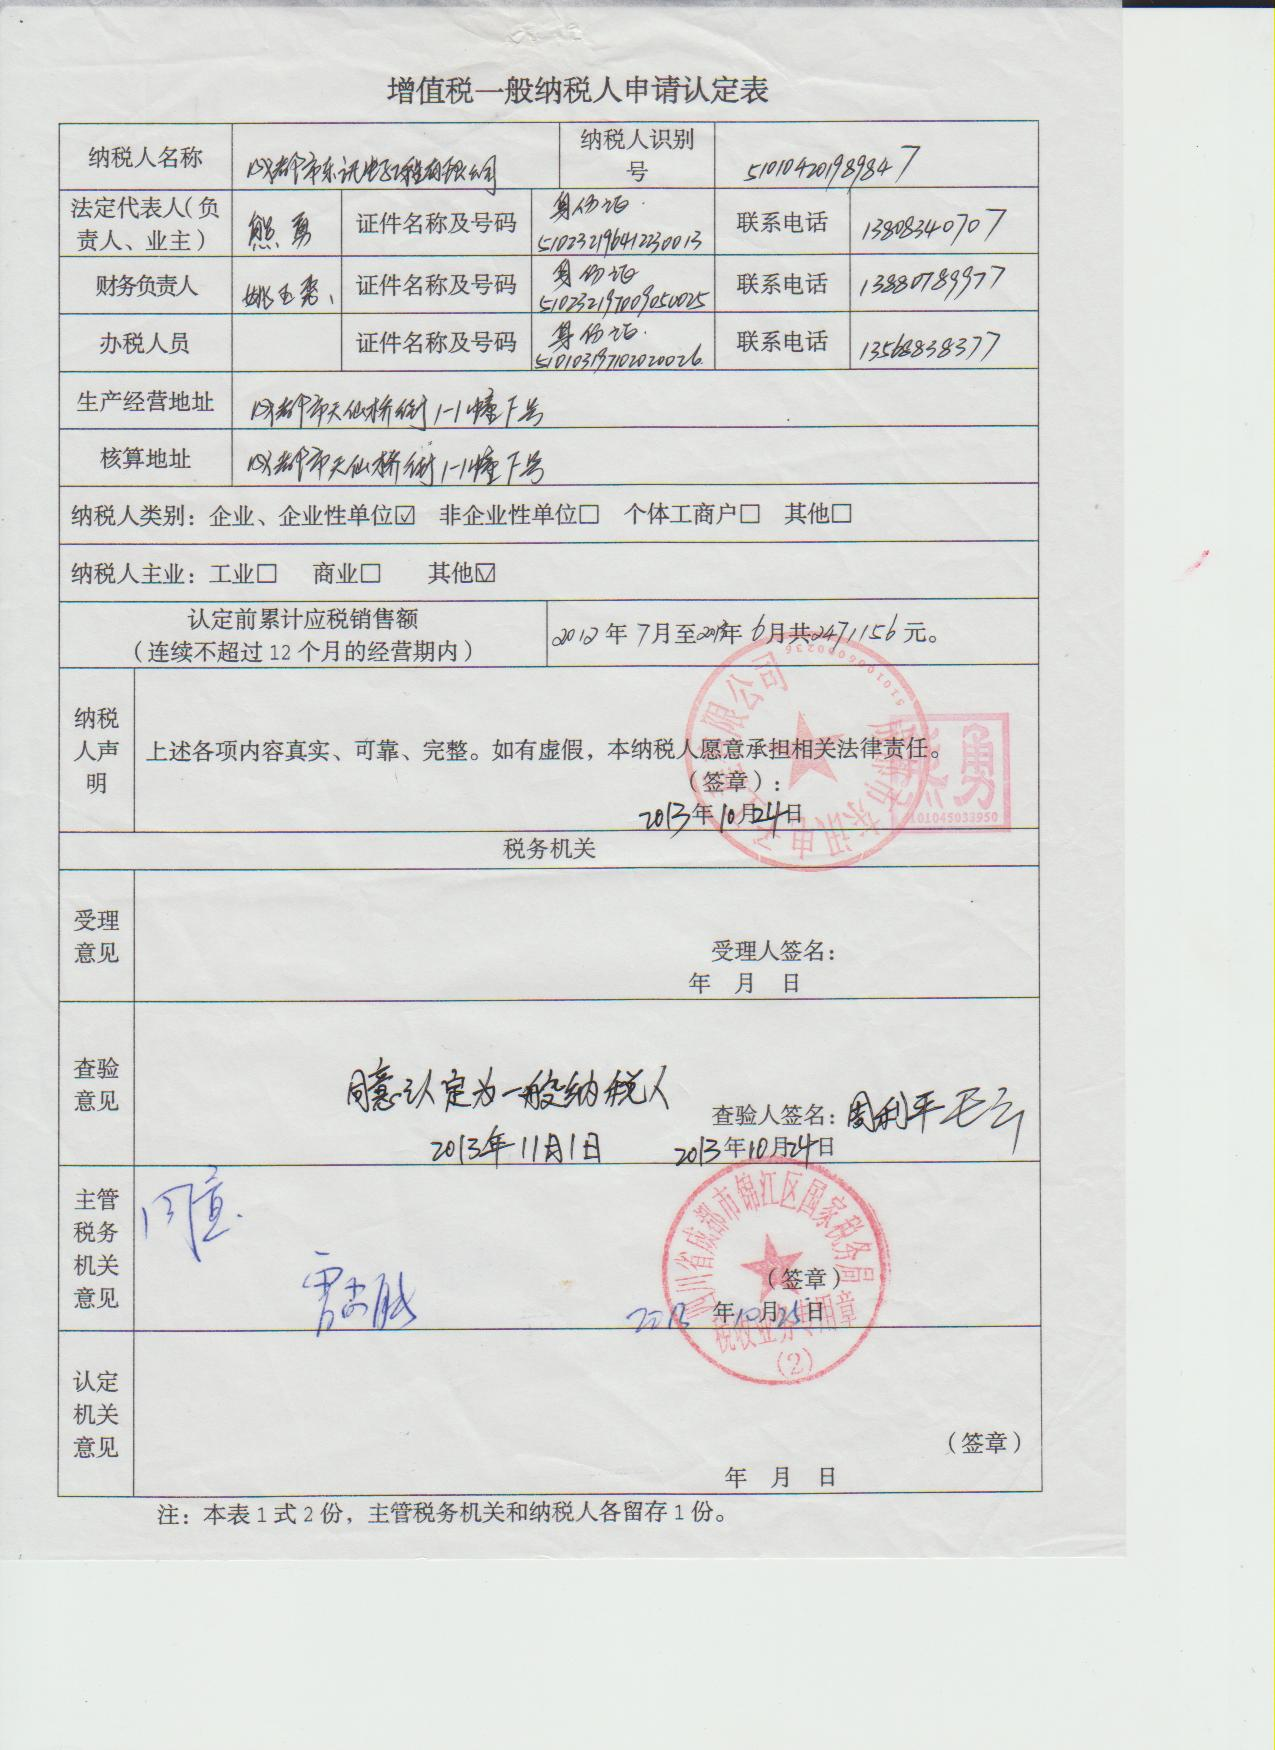 增值税一般纳税人申请认定表
纳税人名称 成都市东讯电子工程有限公司 纳税人识别号 510104201989847
法定代表人(负责人、业主) 熊勇 证件名称及号码 身份证 510232196412230013 联系电话 13808340707
财务负责人 姚玉 证件名称及号码 身份证 510232197009050025 联系电话 13880789977
办税人员 证件名称及号码 身份证 510103197102020026 联系电话 13568838377
生产经营地址 成都市天仙桥街1-1幢下号
核算地址 成都市天仙桥街1-1幢下号
纳税人类别：企业、企业性单位☑ 非企业性单位□ 个体工商户□ 其他□
纳税人主业：工业□ 商业□ 其他☑
认定前累计应税销售额
（连续不超过 12 个月的经营期内） 2012年7月至2013年6月共2471156元。
纳税人声明 上述各项内容真实、可靠、完整。如有虚假，本纳税人愿意承担相关法律责任。
（签章）：
2013年10月24日
成都市东讯电子工程有限公司
熊勇
税务机关
受理意见
受理人签名：
年 月 日
查验意见 同意认定为一般纳税人
查验人签名：周利平
2013年11月1日 2013年10月24日
主管税务机关意见 同意
（签章）
2013年10月25日
四川省成都市锦江区国家税务局
税收业务专用章
(2)
认定机关意见
（签章）
年 月 日
注：本表 1 式 2 份，主管税务机关和纳税人各留存 1 份。